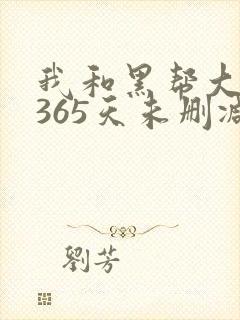 我和黑帮大
365天未删减
劉芳